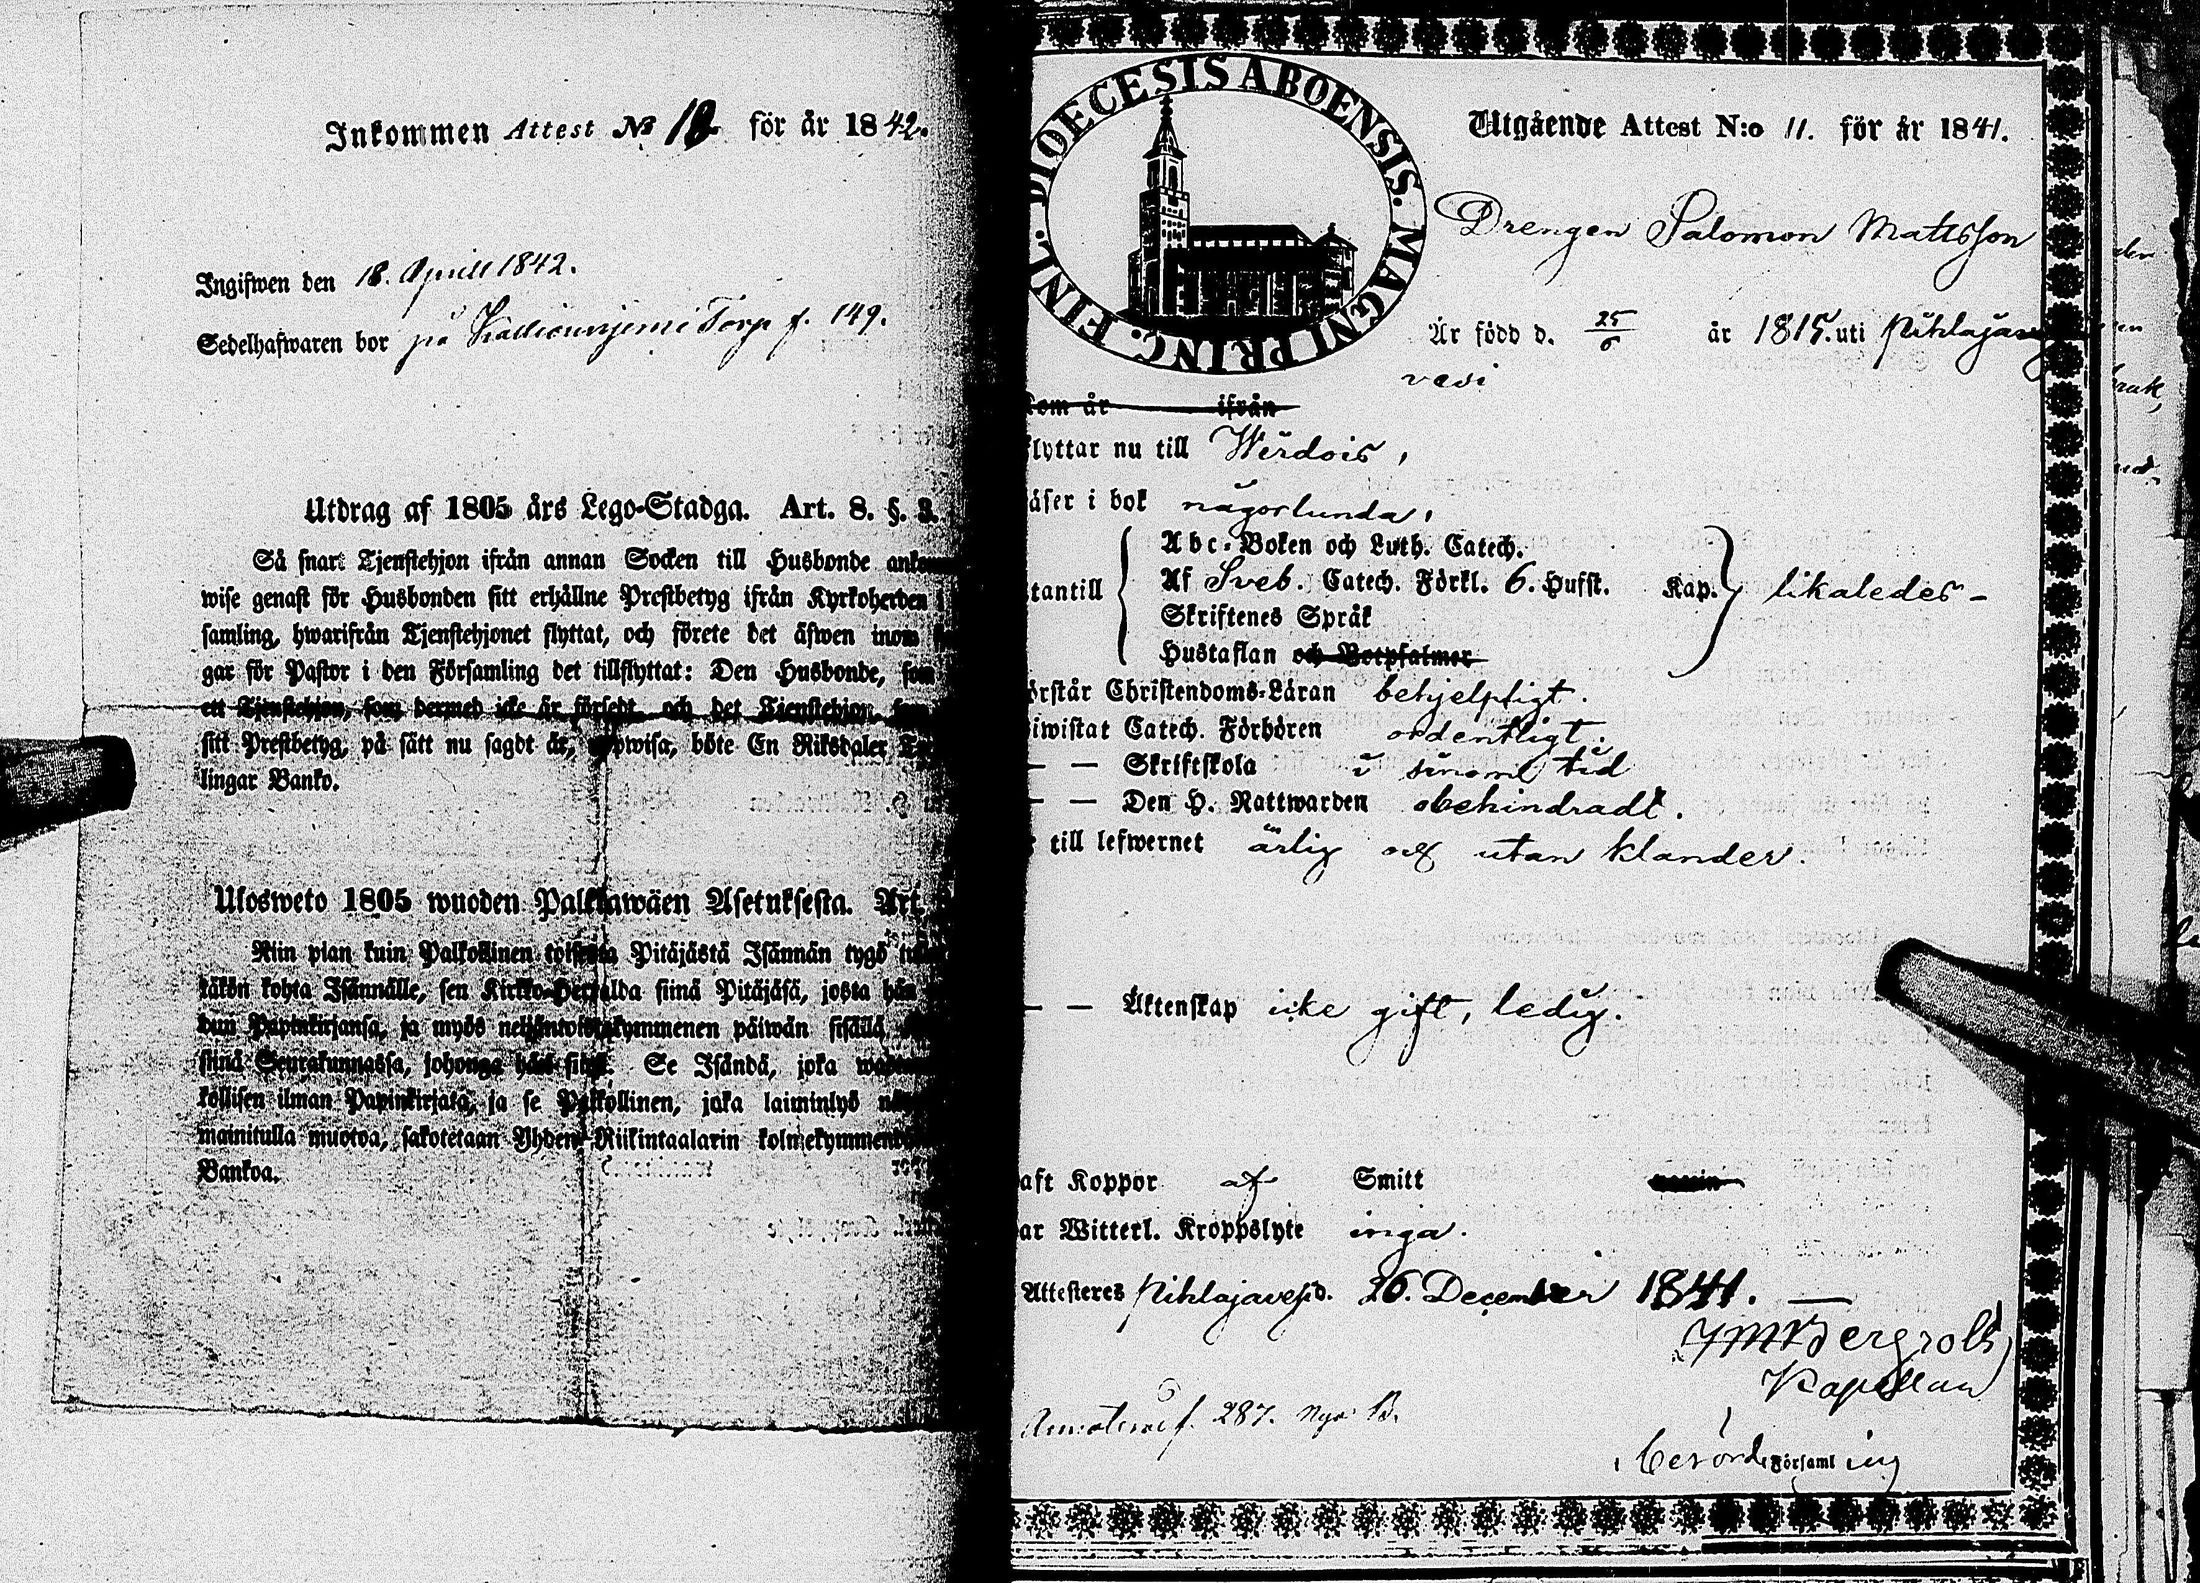 Inkommen Attest № 18. för år 1842.
Ingifwen den 18. Aprill 1842.
Sedelhafwaren bor på Torp f. 149.
Utdrag af 1805 års Lego-Stadga. Art. 8. §. 3.
Så snart Tjenstehjon ifrån annan Socken till Husbonde
wise genast för Husbonden sitt erhållne Prestbetyg ifrån Kyrkoherden i
samling, hwarifrån Tjenstehjonet flyttat, och förete det äfwen inom
gar för Pastor i den Församling det tillflyttat: Den Husbonde, som
ett Tjenstehjon, som dermed icke är försedt, och det Tjenstehjon,
sitt Prestbetyg, på sätt nu sagdt är, uppwisa, böte En Riksdaler
lingar Banko.
Ulosweto 1805 wuoden Palkkawäen Asetuksesta. Art.
Niin pian kuin Palkollinen toisesta Pitäjästä Isännän tygö
täkön kohta Isännälle, sen Kirkko-Herralda siinä Pitäjäsä, josta hän
dun Papinkirjansa, ja myös neljäntoistakymmenen päiwän sisällä
siinä Seurakunnassa, johonga hän Se Isändä, joka
kollisen ilman Papinkirjata, ja se Palkollinen, joka laiminlyö
mainitulla muotoa, sakotetaan Yhden Riikintaalarin
Bankoa.
DIOECESIS ABOENSIS. MAGNI PRINC. FINL.
Utgående Attest N:o 11. för år 1841.
Drengen Salomon Mattsson
Är född d. 25/6 år 1815. uti Pihlaja
vesi
kom år ifrån
flyttar nu till Wirdois,
läser i bok någorlunda,
Abc-Boken och Luth. Catech.
utantill Af Sveb. Catech. Förkl. 6. Hufst. Kap. likaledes -
Skriftenes Språk
Hustaflan och Botpsalmer
örstår Christendoms-Läran behjelpligt.
iwistat Catech. Förhören ordentligt.
— — Skriftskola i sinom tid
— — Den H. Nattwarden obehindradt.
till lefwernet ärlig och utan klander.
— — Äktenskap icke gift, ledig.
aft Koppor af Smitt
ar Witterl. Kroppslyte inga.
Attesteres Pihlajavesi d. 26. December 1841. —
Bergroth
Kapellan
f. 287. B.
i berörde Församling